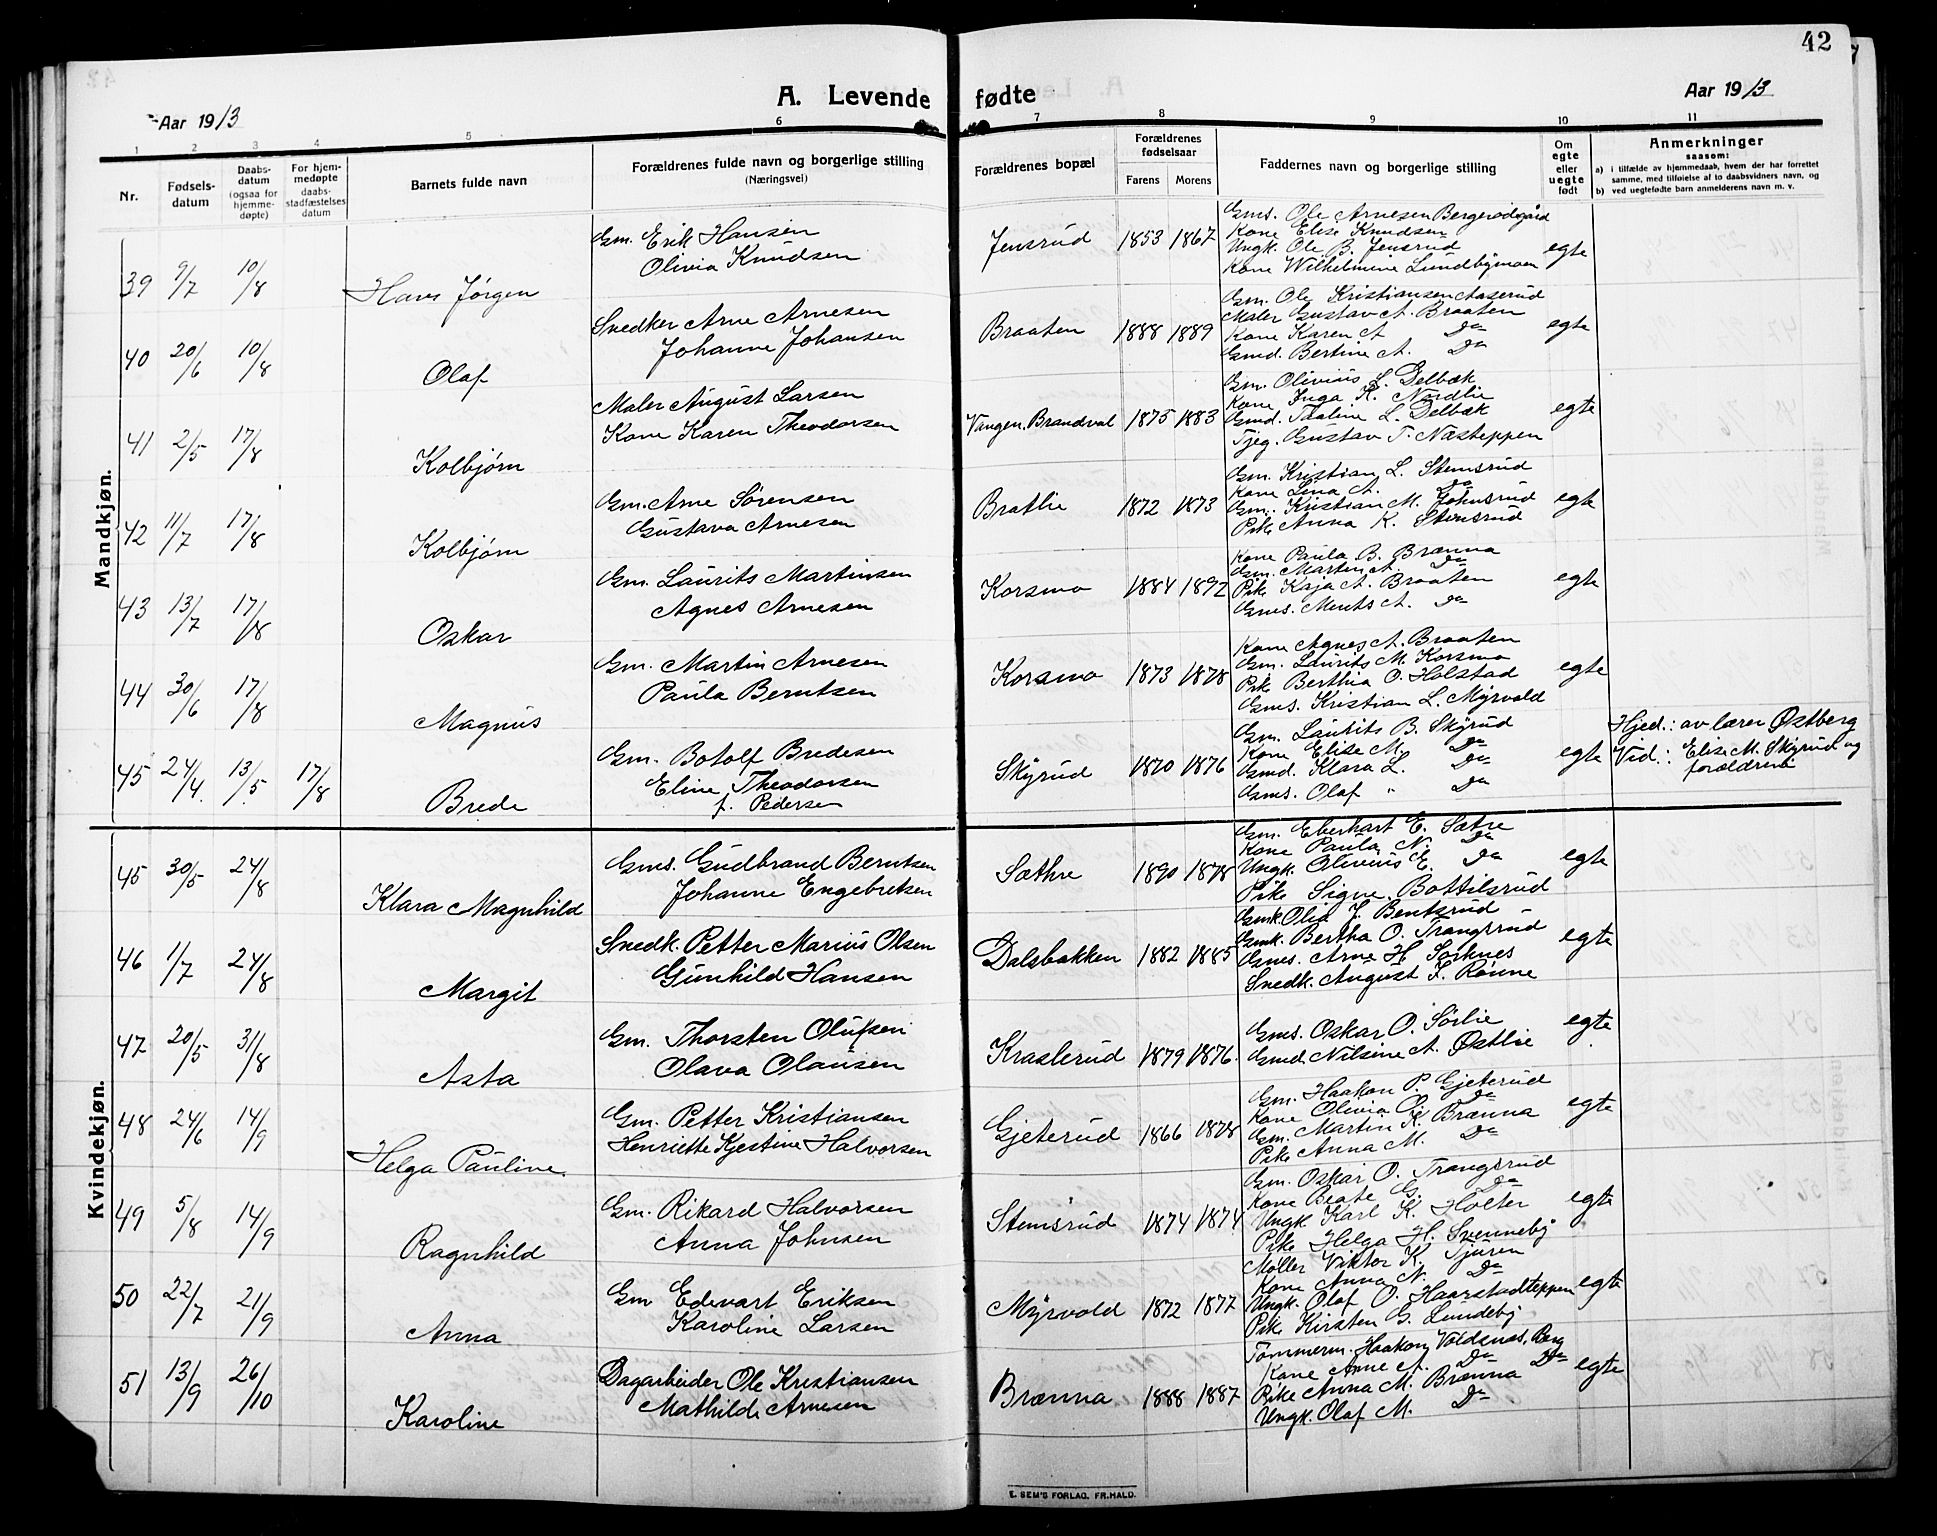 42
A. Levende fødte
Aar 1913
Aar 1913
1 2 3 4 5 6 7 8 9 10 11
Nr.
Fødsels-datum
Daabs-datum (ogsaa for hjemme-døpte)
For hjem-medøpte daabs-stadfæstelses datum
Barnets fulde navn
Forældrenes fulde navn og borgerlige stilling (Næringsvei)
Forældrenes bopæl
Forældrenes fødselsaar
Farens Morens
Faddernes navn og borgerlige stilling
Om egte eller uegte født
Anmerkninger
saasom:
a) i tilfælde av hjemmedaab, hvem der har forrettet samme, med tilføielse af to daabsvidners navn, og
b) ved uegtefødte barn anmelderens navn m. v.
Mandkjøn.
39 9/7 10/8 Hans Jørgen
Gm. Erik Hansen
Olivia Knudsen
Jensrud 1853 1867
Gms. Ole Arnesen Bergerødgård
Kone Elise Knudsen
Ungk. Ole B. Jensrud
Kone Wilhelmine Lundbymoen
egte
40 20/6 10/8 Olaf
Snedker Arne Arnesen
Johanne Johansen
Braaten 1888 1889
Gm. Ole Kristiansen Aaserud
Maler Gustav A. Braaten
Kone Karen A Do
Gmd. Bertine A. Do
egte
41 2/5 17/8 Kolbjørn
Maler August Larsen
Kone Karen Theodorsen
Vangen, Brandval 1875 1883
Gm. Olivius L. Delbæk
Kone Inga K. Nordlie
Gmd. Thaline L. Delbæk
Tjeg. Gustav T. Næsteppen
egte
42 11/7 17/8 Kolbjørn
Gm. Arne Sørensen
Gustava Arnesen
Bratlie 1872 1873
Gm. Kristian L. Stemsrud
Kone Lina A. Do
Gm. Kristian M. Johnsrud
Pike Anna K. Stensrud
egte
43 13/7 17/8 Oskar
Gm. Laurits Martinsen
Agnes Arnesen
Korsmo 1884 1892
Kone Paula B. Brænna
Gm. Martin A. Do
Pik. Kaja A. Braaten
Gms. Ments A. Do
egte
44 30/6 17/8 Magnus
Gm. Martin Arnesen
Paula Berntsen
Korsmo 1873 1878
Kone Agnes A. Braaten
Gm. Laurits M. Korsmo
Pik. Berthia O. Holstad
Gms. Kristian L. Myrvold
egte
45 24/4 13/5 17/8 Brede
Gm. Botolf Bredesen
Eline Theodorsen
f. Pedersen
Skyrud 1870 1876
Gm. Laurits B. Skyrud
Kone Elise M. Do
Gmd. Klara L. Do
Gms. Olaf " Do
egte
Hjed.: av lærer Østberg
Vid.: Elise M. Skyrud og
forældrene
Kvindekjøn.
45 30/5 24/8 Klara Magnhild
Gms. Gudbrand Berntsen
Johanne Engebretsen
Sæthre 1890 1878
Gm. Eberhart E. Sætre
Kone Paula N. Do
Ungk. Olivius E. Do
Pike Signe Bottilsrud
egte
46 1/7 24/8 Margit
Snedk. Petter Marius Olsen
Gunhild Hansen
Dalsbakken 1882 1885
Gmk. Olia J. Bentsrud
Gmk. Bertha O. Trangsrud
Gms. Arne H. Sorknes
Snedk. August L. Rønne
egte
47 20/5 31/8 Asta
Gm. Thorsten Olufsen
Olava Olausen
Kraslerud 1879 1876.
Gms. Oskar O. Sørlie
Gmd Nilsine A. Østlie
egte
48 24/6 14/9 Helga Pauline
Gm. Petter Kristiansen
Henriette Kjestine Halvorsen
Gjeterud 1866 1878
Gm. Haakon P. Gjeterud
Kone Olivia O. Do
Gm. Martin K. Brænna
Pike Anna M. Do
egte
49 5/8 14/9 Ragnhild
Gm. Rikard Halvorsen
Anna Johnsen
Stemsrud 1874 1874
Gm. Oskar O. Trangsrud
Kone Beate G. Do
Ungk. Karl K. Holter
Pike Helga H. Svenneby
egte
50 22/7 21/9 Anna
Gm Edevart Eriksen
Karoline Larsen
Myrvold 1872 1877
Møller Viktor K. Tjuren
Kone Anna N. Do
Ungk. Olaf O. Haarstadteppen
Pike Kirsten G. Lundeby
egte
51 13/9 26/10 Karoline
Dagarbeider Ole Kristiansen
Mathilde Arnesen
Brænna 1888 1887
Tømmerm. Haakon Voldsnæs, Berg
Kone Arne A. Do Do
Pike Anna M. Brænna
Ungk. Olaf M. Do
egte
E. SEM'S FORLAG, FR.HALD.